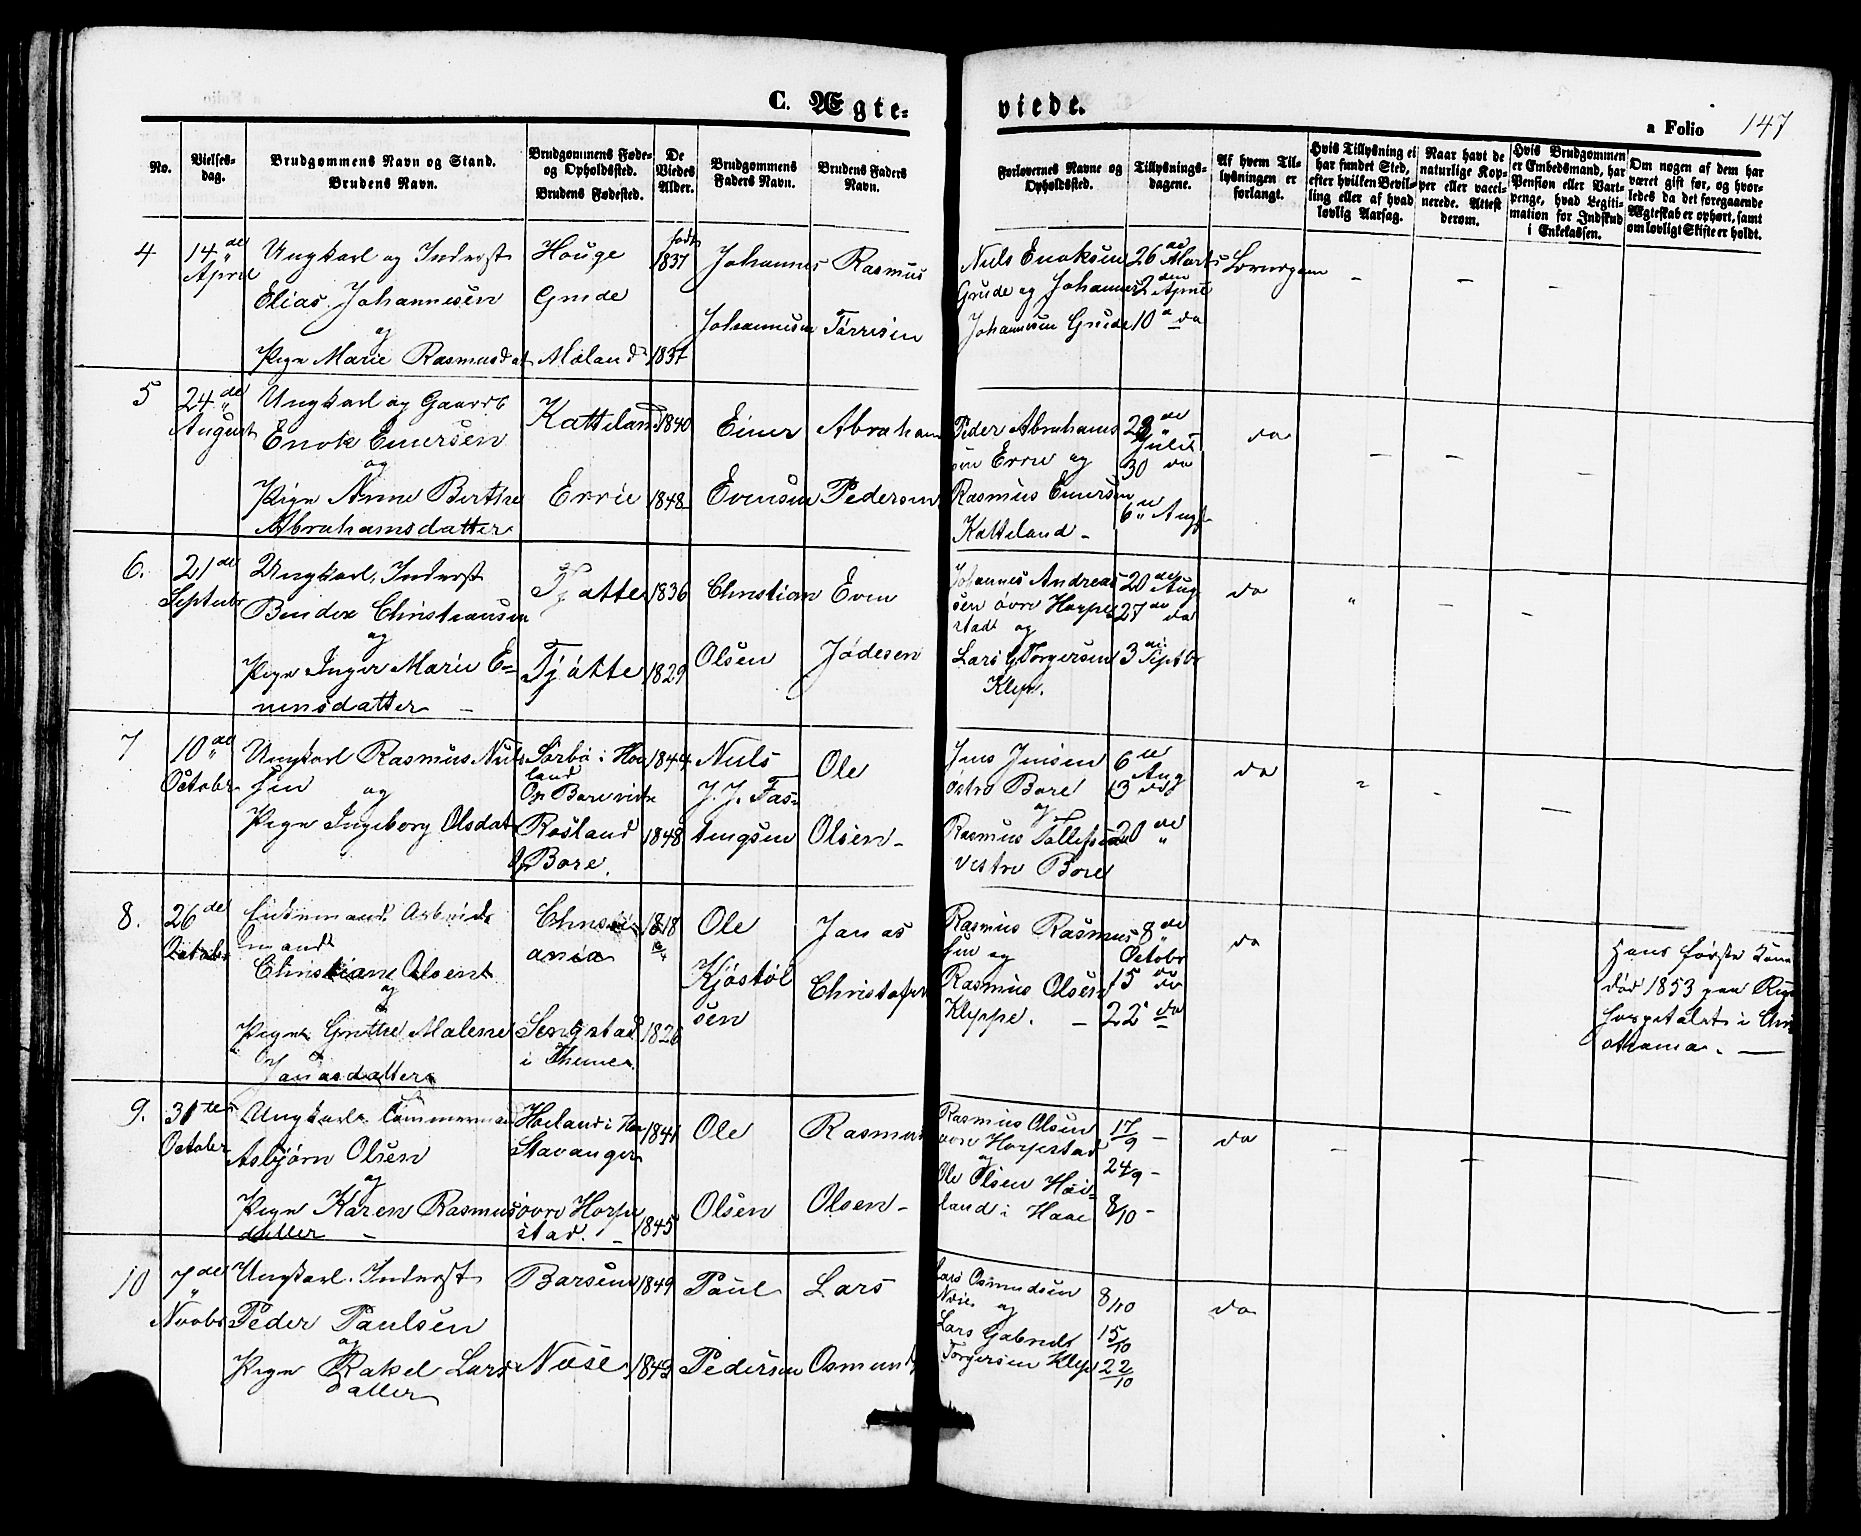 C. Ægte-
viede.
a Folio 147
No.
Vielses-
dag.
Brudgommens Navn og Stand.
Brudens Navn.
Brudgommens Føde-
og Opholdssted.
Brudens Fødested.
De
Viedes
Alder.
Brudgommens
Faders Navn.
Brudens Faders
Navn.
Forlovernes Navne og
Opholdssted.
Tillysnings-
dagene.
Af hvem Til-
lysningen er
forlangt.
Hvis Tillysning ei
har fundet Sted,
efter hvilken Bevil-
ling eller af hvad
lovlig Aarsag.
Naar havt de
naturlige Kop-
per eller vacci-
nerede. Attest
derom.
Hvis Brudgommen
er Embedsmand, har
Pension eller Vart-
penge, hvad Legiti-
mation for Indskud
i Enkekassen.
Om nogen af dem har
været gift før, og hvor-
ledes da det foregaaende
Ægteskab er ophørt, samt
om lovligt Skifte er holdt.
4
14de
April
Ungkarl og Inderst
Elias Johannesen
og
Pige Marie Rasmusdat
Houge
Grude
Mæland
født
1837
1837
Johannes
Johannesen
Rasmus
Tørresen
Niels Enoksen
Grude og Johannes
Johannesen Grude
26de Marts
2den April
10de do
5
24de
August
Ungkarl og Gaardb
Enok Einersen
og
Pige Anne Berthe
Abrahamsdatter
Katteland
Errie
1840
1848
Einer
Evensen
Abraham
Pedersen
Peder Abrahams
sen Erre og
Rasmus Einersen
Katteland -
28de
Juli
30 do
6te Aug
do
6.
21de
Septbr
Ungkarl, Inderst
Bendix Christiansen
og
Pige Inger Marie E=
vensdatter -
Tjøtte
Tjøtte
1836
1829
Christian
Olsen
Even
Jødesen
Johannes Andreas
sen øvre Horpe
stad og
Lars G Torgersen
Klep.
20de Aug
27de do
3die Septbr
do
7
10de
Octobr
Ungkarl Rasmus Niels
sen og
Pige Ingeborg Olsdat
Sørbø i Hov
land
Op Bore vestre
Røsland
Op Bore.
1844
1848
Niels
J. J. Fas=
tingsen
Ole
Olsen -
Jens Jensen
østre Bore
og
Rasmus Tollefsen
vestre Bore
6te
Aug
13 do
20de
do
8.
26de
Octobr
Enkemand Arbeids
mand
Christian Olsen
og
Pige Grethe Malene
Janasdatter
Christi
ania
Sengstad
i Thime
1818
1826
Ole
Kjøstøl
sen
Janas
Christofer
Rasmus Rasmus
sen og
Rasmus Olsen
Kleppe. -
8de
Octobr
15 do
22 do
do
Hans første Kone
død 1853 paa Rigs
hospitalet i Chri
stiania. -
9.
31te
October
Ungkarl Tømmermand
Asbjørn Olsen
og
Pige Karen Rasmus
datter -
Høiland i Haa
Stavanger
øvre Horpe
stad. -
1841
1845
Ole
Olsen
Rasmus
Olsen -
Rasmus Olsen
øvre Horpestad
og
Ole Olsen Høi=
land i Haae
17/9 -
24/9 -
8/10 -
do
10
7de
Novbr
Ungkarl. Inderst
Peder Paulsen
og
Pige Rakel Lars
datter
Barsem
Næse
1849
1849
Paul
Pedersen
Lars
Osmunds
Lars Osmundsen
Næse og
Lars Gabriel
Torgersen Klep
8/10
15/10
22/10
do